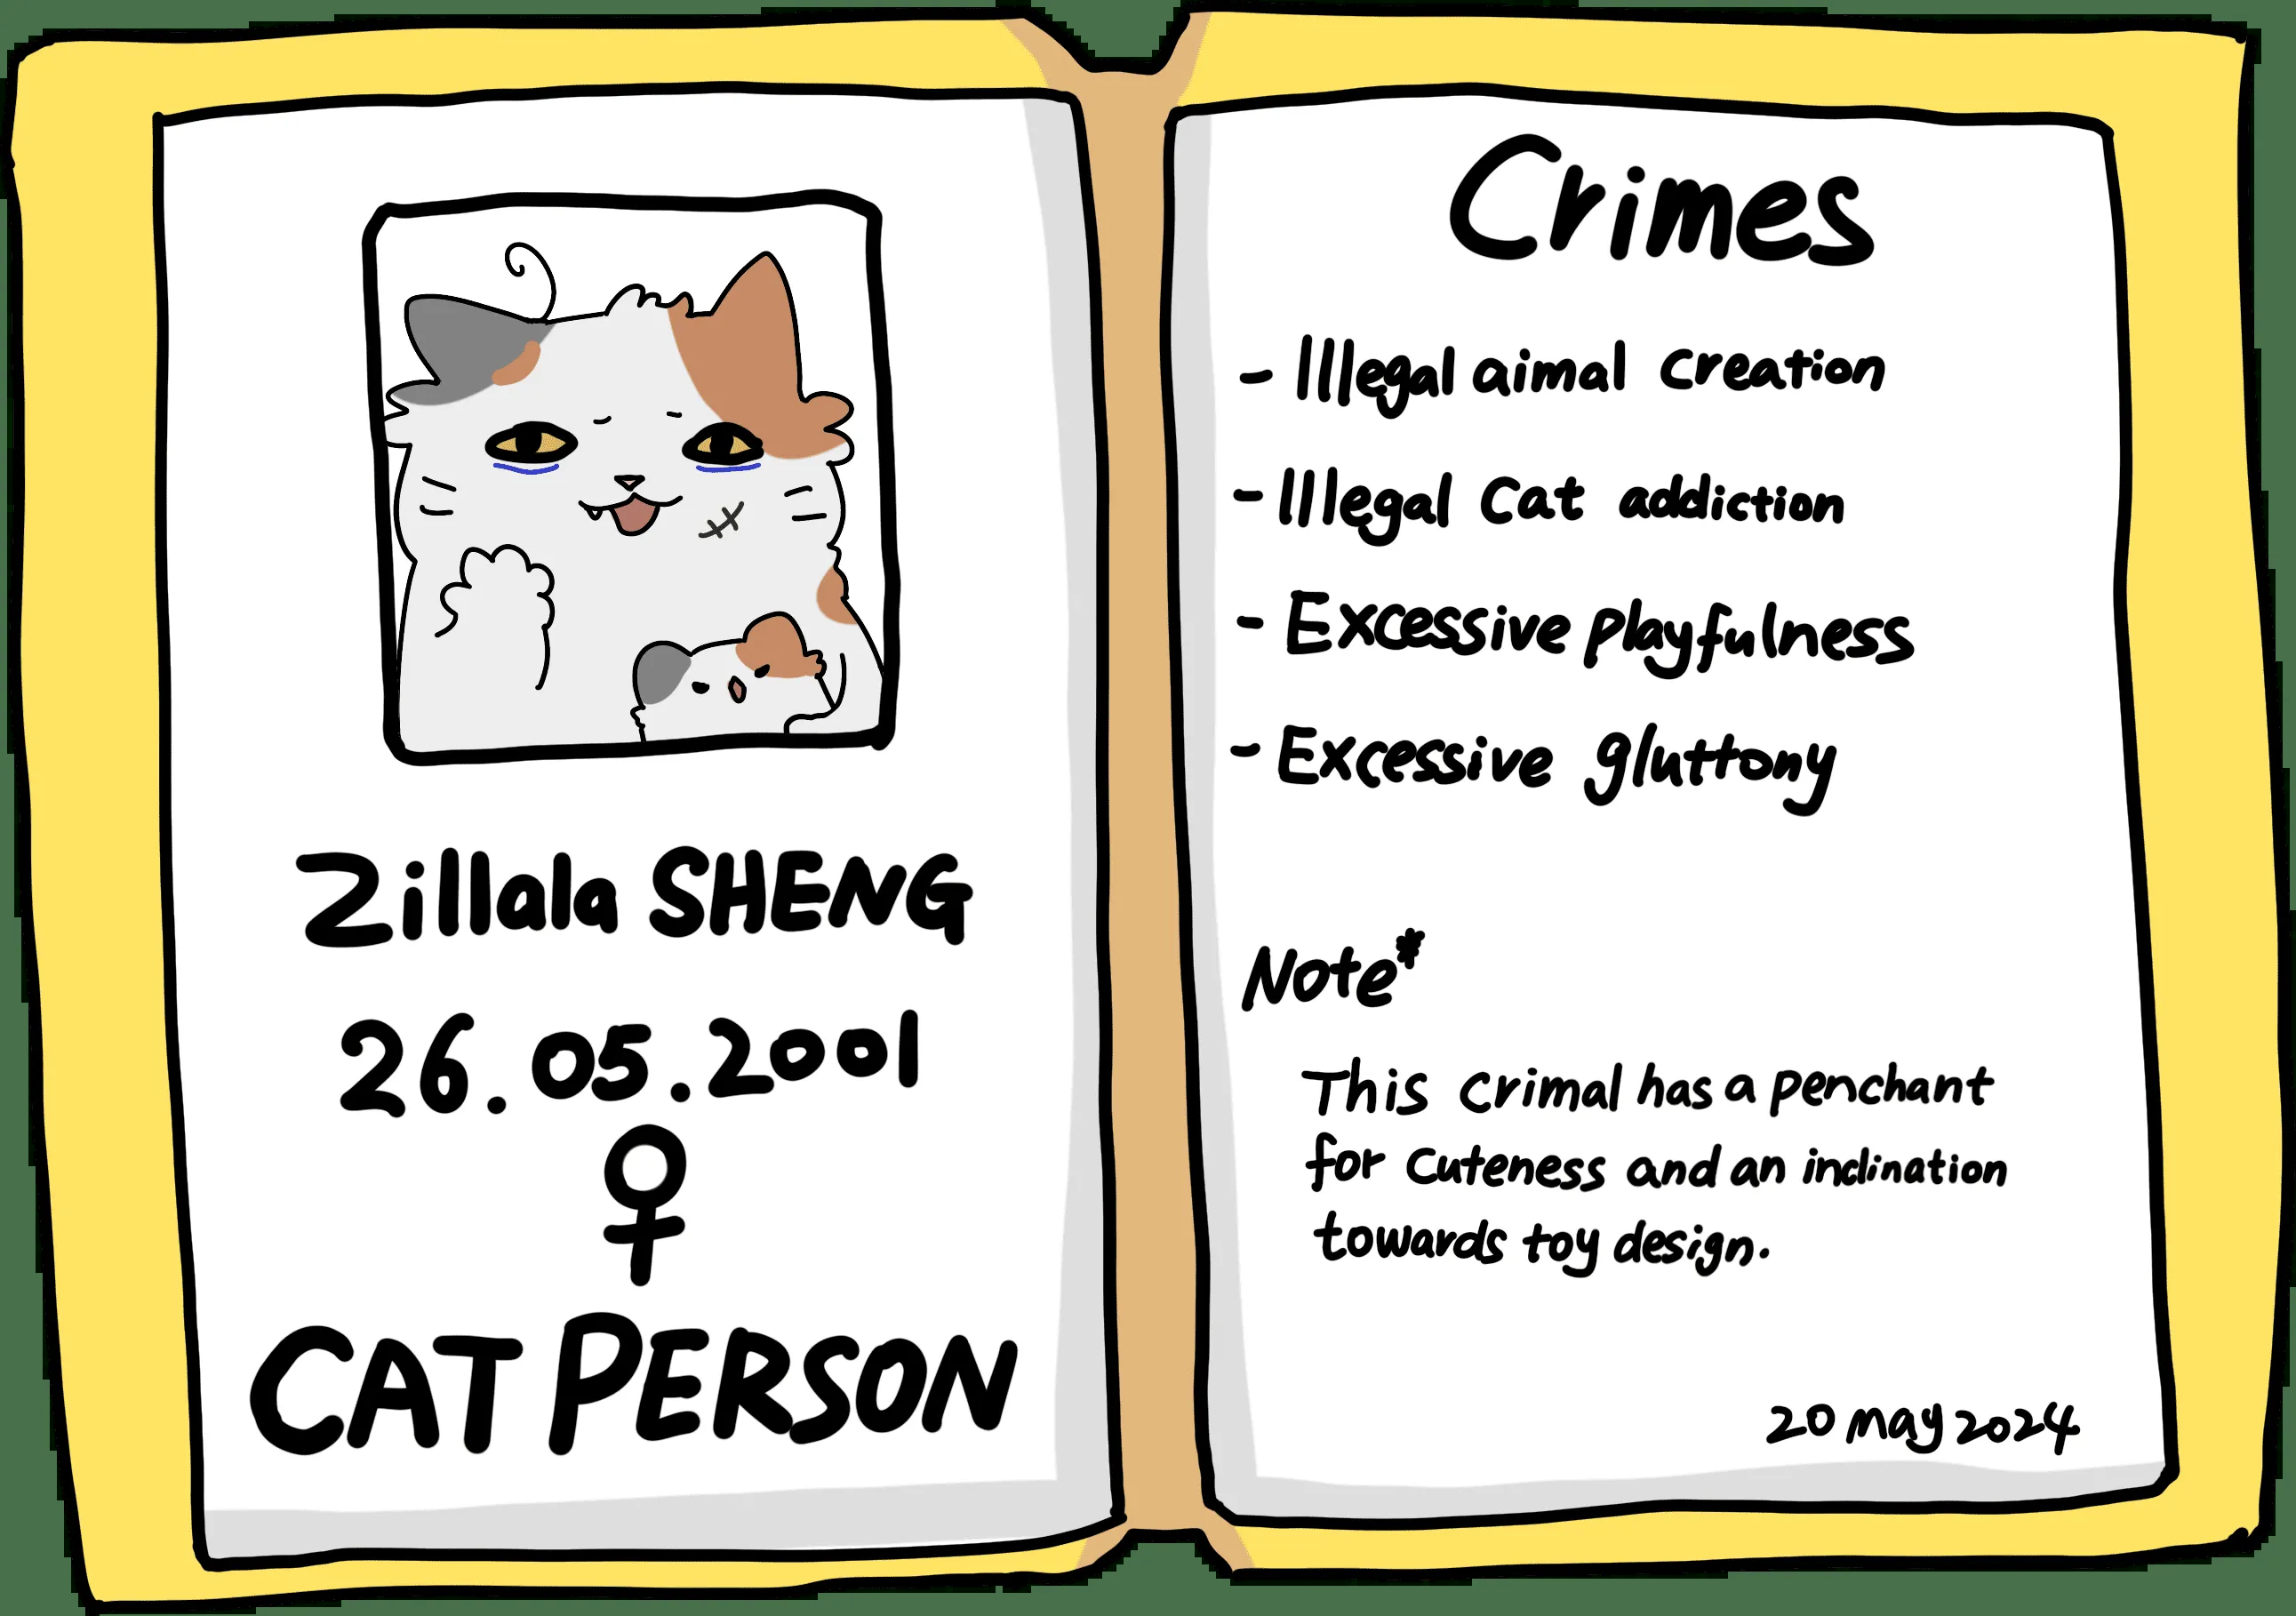 Zillala SHENG
26.05.2001
♀
CAT PERSON
Crimes
- Illegal aimal creation
- Illegal Cat addiction
- Excessive playfulness
- Excessive gluttony
Note*
This crimal has a penchant
for cuteness and an inclination
towards toy design.
20 may 2024